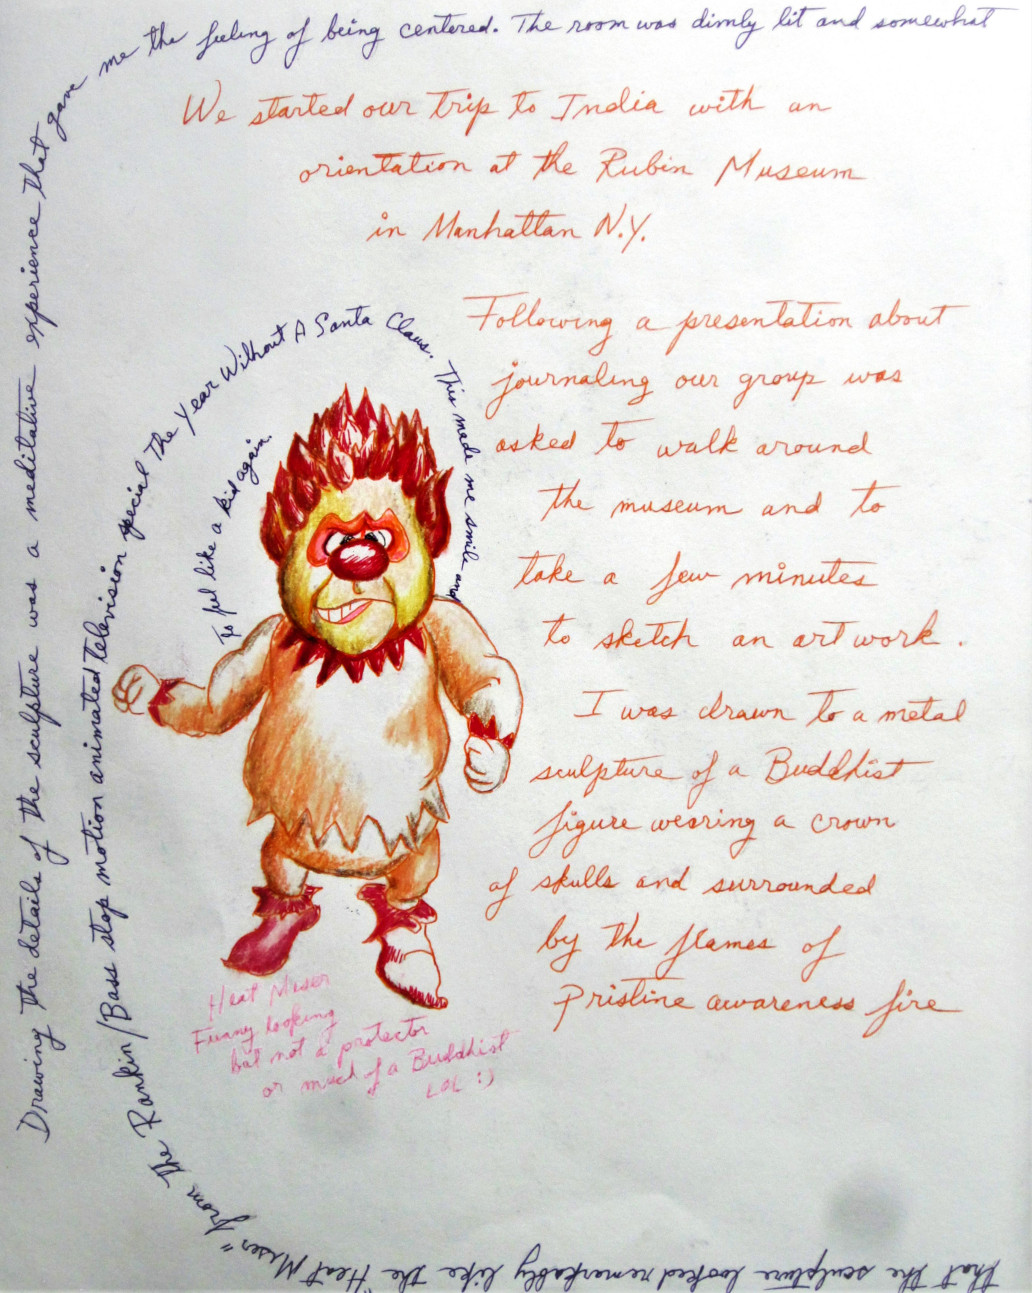 We started our trip to India with an
orientation at the Rubin Museum
in Manhattan N.Y.
Following a presentation about
journaling our group was
asked to walk around
the museum and to
take a few minutes
to sketch an art work.
I was drawn to a metal
sculpture of a Buddhist
figure wearing a crown
of skulls and surrounded
by the flames of
Pristine awareness fire
Drawing the details of the sculpture was a meditative experience that gave me the feeling of being centered. The room was dimly lit and somewhat
that the sculpture looked remarkably like the "Heat Meser" from The Rankin/Bass stop motion animated television special The Year Without A Santa Claus. This made me smile and
to feel like a kid again.
Heat Meser
Funny looking
but not a protector
or much of a Buddhist
LOL :)